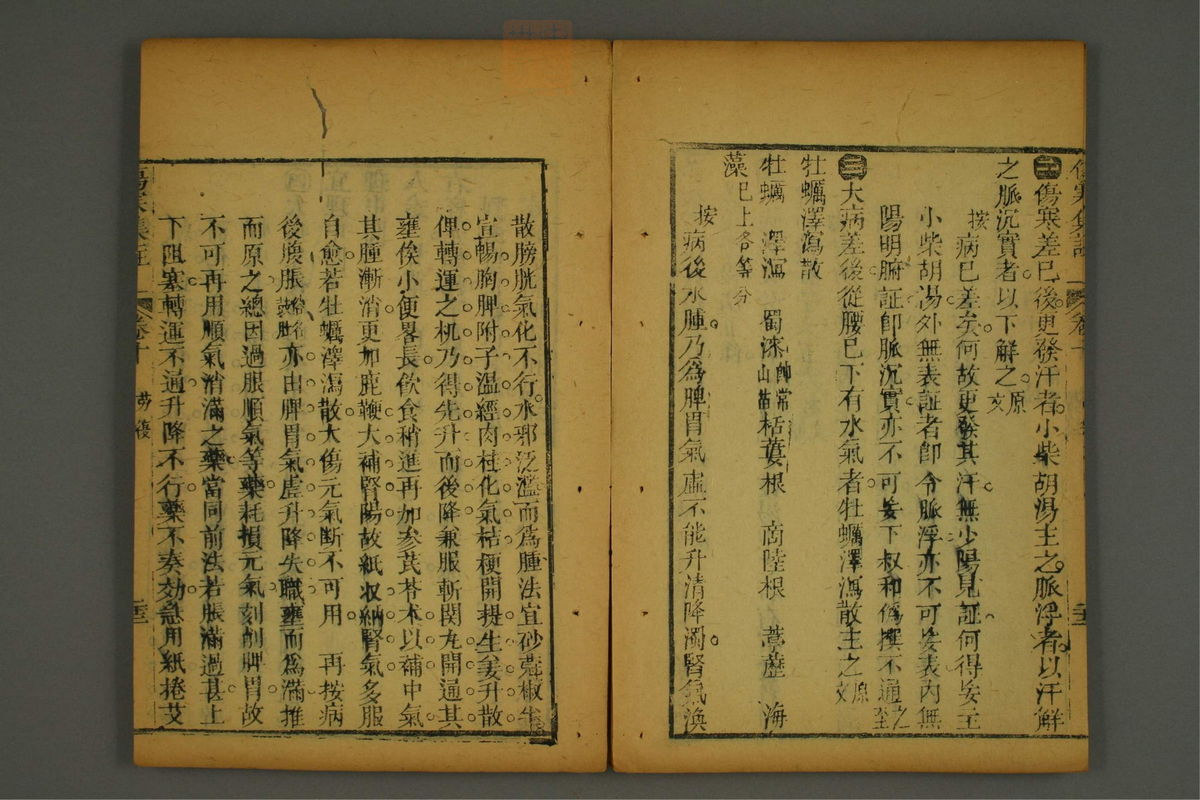 傷寒差已後更發汗者小柴胡湯主之脈浮者以汗解
之脈沉實者以下解之原文
按病已差矣何故更發其汗無少陽見証何得妄主
小柴胡湯外無表証者即令脈浮亦不可妄表內無
陽明腑証即脈沉實亦不可妄下叔和僞撰不通之至
三大病差後從腰已下有水氣者牡蠣澤瀉散主之原文
牡蠣澤瀉散
牡蠣 澤瀉 蜀漆即常山苗 栝蔞根 商陸根 葶藶 海
藻已上各等分
按病後水腫乃為脾胃氣虛不能升清降濁腎氣渙
散膀胱氣化不行水邪泛濫而為腫法宜砂蔻椒生
宣暢胸脾附子溫經肉桂化氣桔梗開提生姜升散
俾轉運之机乃得先升而後降兼服斬関丸開通其
壅俟小便畧長飲食稍進再加參芪苓术以補中氣
其腫漸消更加鹿鞭大補腎陽故紙収納腎氣多服
自愈若牡蠣澤瀉散大傷元氣斷不可用 再按病
後腹脹亦由脾胃氣虛升降失職壅而為滿推
而原之總因過服順氣等藥耗損元氣刻削脾胃故
不可再用順氣消滿之藥當同前法若脹滿過甚上
下阻塞轉運不通升降不行藥不奏効急用紙捲艾
傷寒集註 卷十 勞復